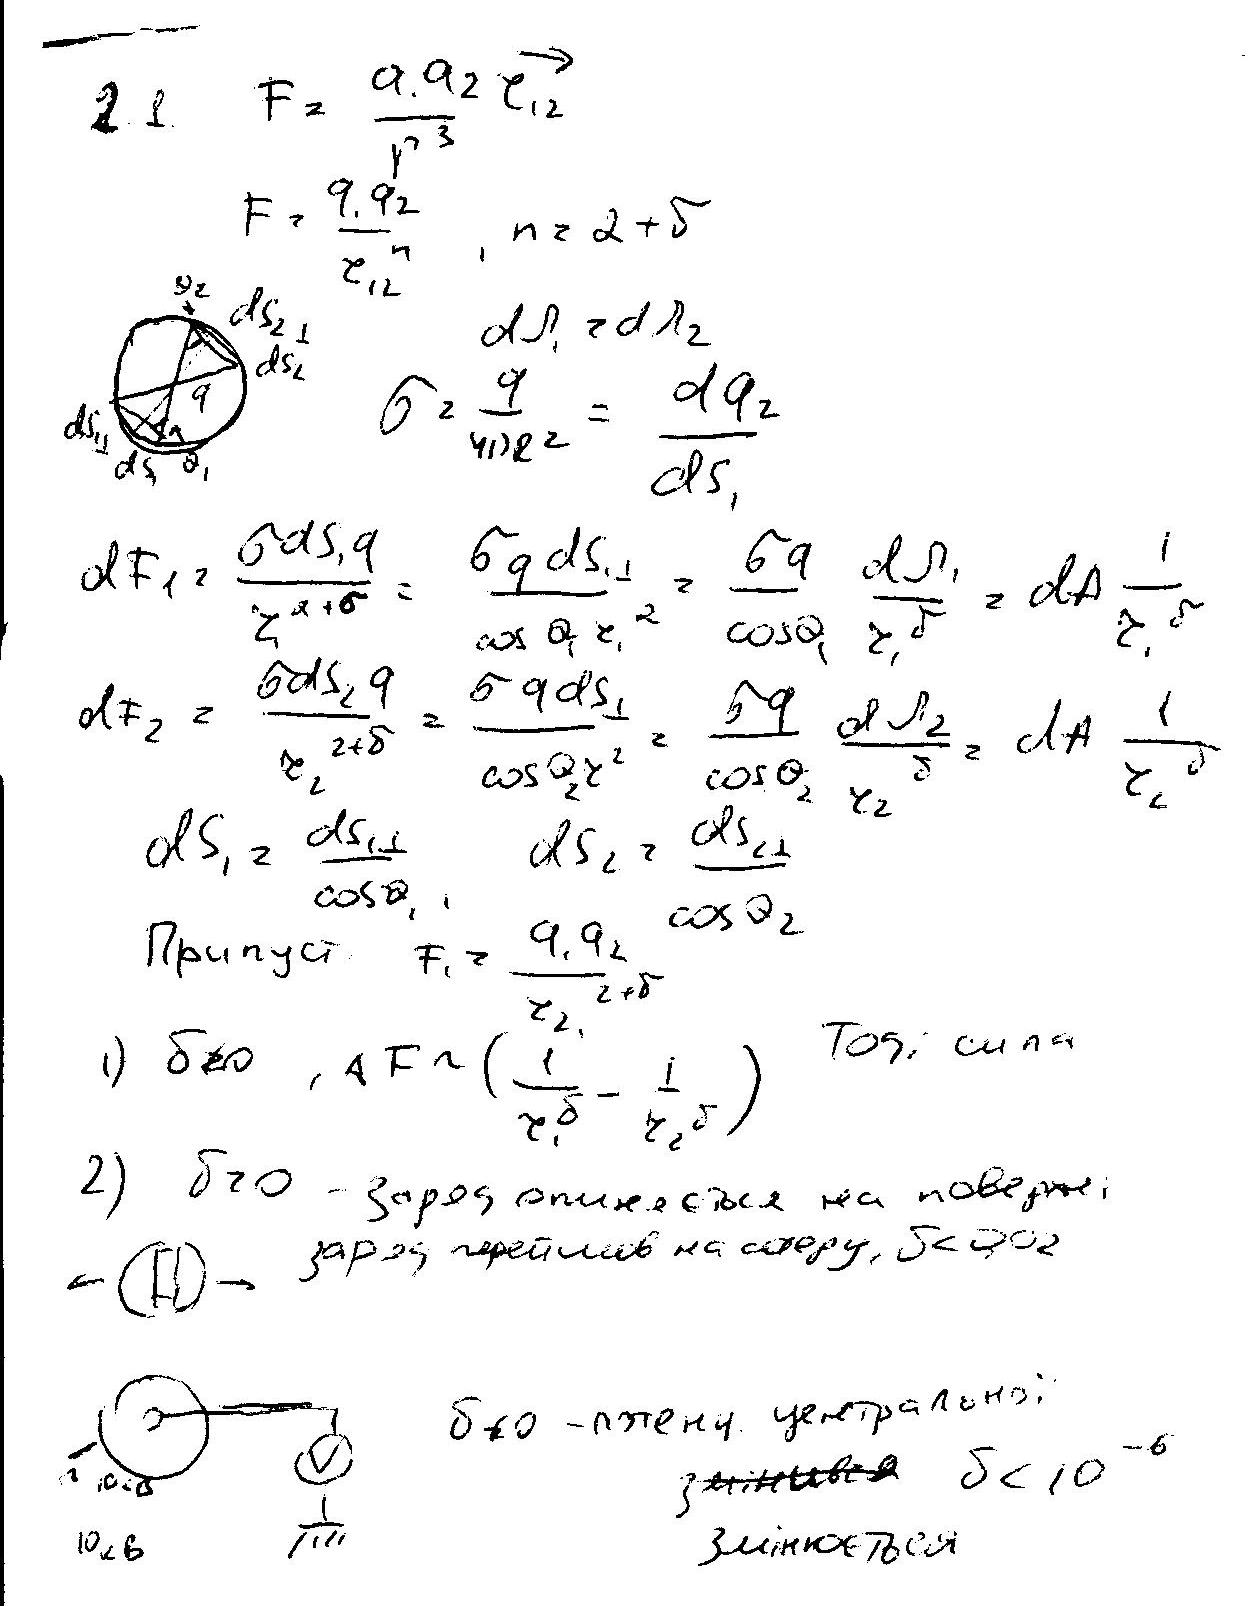 2.1. F = q₁q₂/r³ r₁₂→
F = q₁q₂/r₁₂ⁿ , n = 2 + δ
θ₂ dS₂⊥
dΩ₁ = dΩ₂
dS₂
q
σ = q/4πR² = dq₂/dS₁
dS₁⊥
dS₁ θ₁
dF₁ = σdS₁q/r₁²⁺ᵟ = σq dS₁⊥/cosθ₁ r₁² = σq/cosθ₁ dΩ₁/r₁ᵟ = dA 1/r₁ᵟ
dF₂ = σdS₂q/r₂²⁺ᵟ = σqdS⊥/cosθ₂r² = σq/cosθ₂ dΩ₂/r₂ᵟ = dA 1/r₂ᵟ
dS₁ = dS₁⊥/cosθ₁, dS₂ = dS₂⊥/cosθ₂
Припуст. F₁ = q₁q₂/r₂₁²⁺ᵟ
1) δ≠0 , ΔF ~ (1/r₁ᵟ − 1/r₂ᵟ) Тоді сила
2) δ=0 – заряд опиняється на поверхні
заряд перейшов на сферу, δ<0,02
δ≠0 – потенц. центральної
10кВ
V
δ < 10⁻⁶
10кВ
змінюється